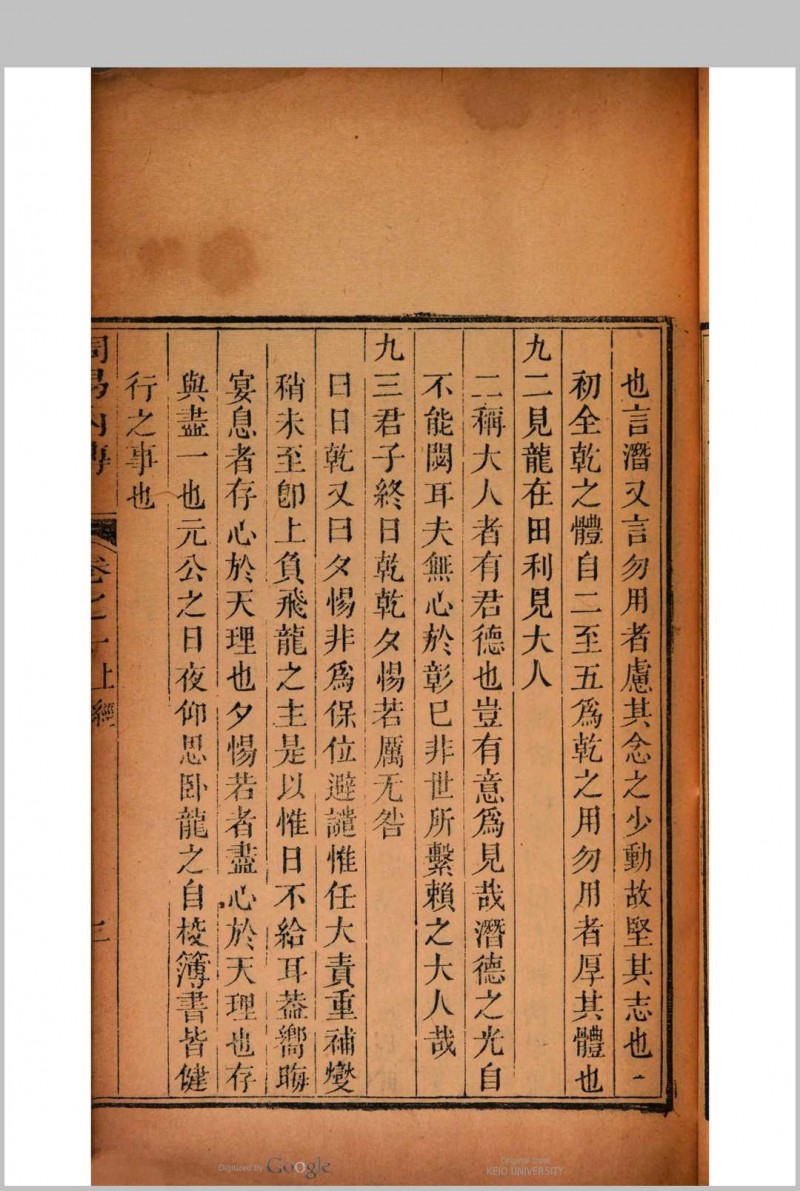 也言潛又言勿用者慮其念之少動故堅其志也
初全乾之體自二至五爲乾之用勿用者厚其體也
九二見龍在田利見大人
二稱大人者有君德也豈有意爲見哉潛德之光自
不能閟耳夫無心於彰已非世所繫賴之大人哉
九三君子終日乾乾夕惕若厲无咎
曰日乾又曰夕惕非爲保位避譴惟任大責重補爕
稍未至卽上負飛龍之主是以惟日不給耳葢嚮晦
宴息者存心於天理也夕惕若者盡心於天理也存
與盡一也元公之日夜仰思卧龍之自校簿書皆健
行之事也
周易內傳 卷之一上經 三
Digitized by Google
Original from
KEIO UNIVERSITY